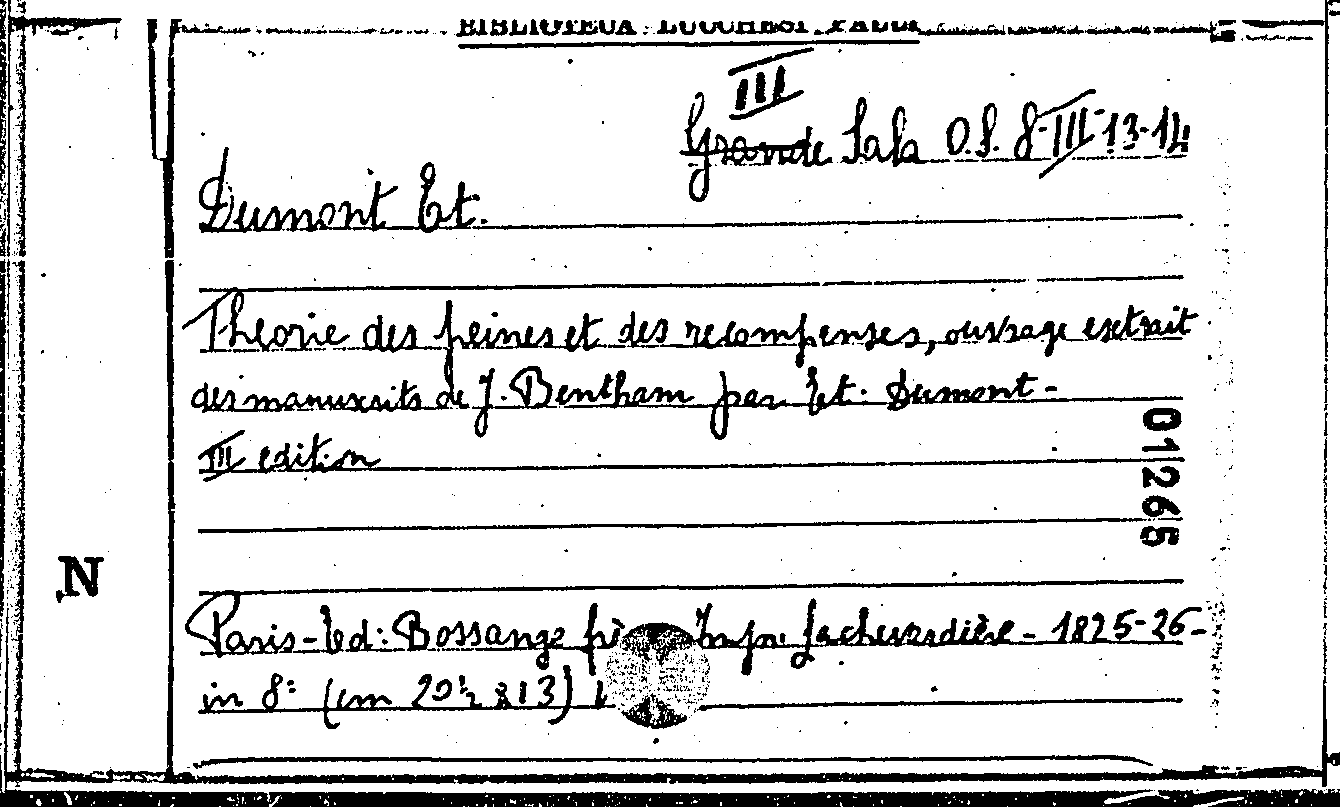 BIBLIOTECA LUCCHESI PALLI
III
Grande Sala O.S. 8-III-13-14
Dumont Et.
Theorie des peines et des recompenses, ouvrage extrait
des manuscrits de J. Bentham par Et. Dumont -
III edition
01265
N
Paris - Ed: Bossange Impr Lachevardière - 1825-26-
in 8º (cm 20½ x 13)